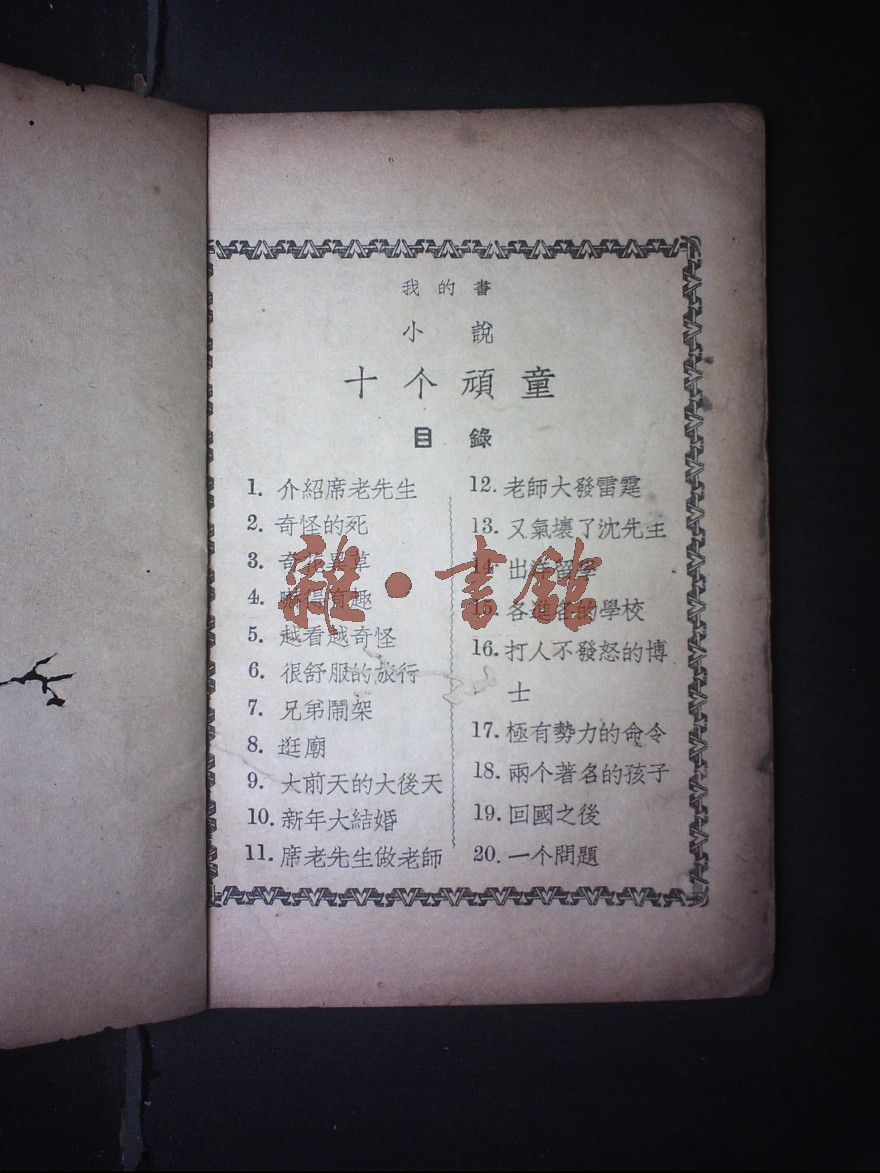 我的書
小說
十个頑童
目錄
1. 介紹席老先生
2. 奇怪的死
3. 奇花異草
4. 嚇得有趣
5. 越看越奇怪
6. 很舒服的旅行
7. 兄弟鬧架
8. 逛廟
9. 大前天的大後天
10. 新年大結婚
11. 席老先生做老師
12. 老師大發雷霆
13. 又氣壞了沈先生
14. 出洋留學
15. 各進各的學校
16. 打人不發怒的博
士
17. 極有勢力的命令
18. 兩个著名的孩子
19. 回國之後
20. 一个問題
雜·書館